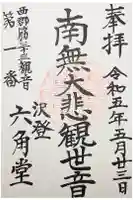 奉拝
令和五年五月廿三日
南無大悲観世音
沢登
六角堂
西郡筋三十三観音
第一番